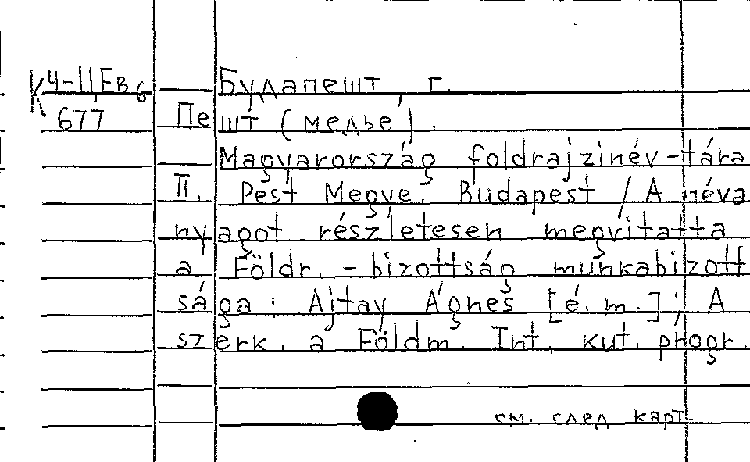 К4-11,Ев6 Будапешт, г.
677 Пешт (медье)
Magyarország földrajzinév-tára
II. Pest Megye. Budapest / A néva
nyagot részletesen megvitatta
a Földr.-bizottság munkabizott
sága: Ajtay Ágnes [é.m.]; A
szerk. a Földm. Int. kut. progr.
см. след карт